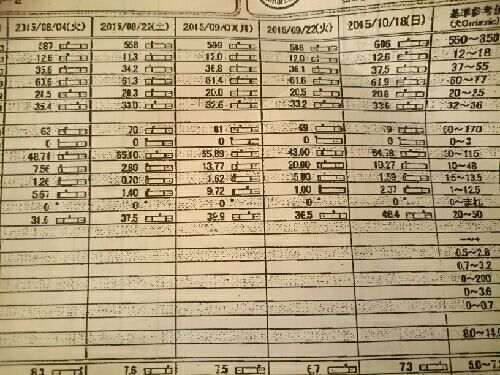 2015/08/04(火) 2015/08/22(土) 2015/09/07(月) 2015/09/22(火) 2015/10/18(日) 基準参考値
587 558 599 546 606 550~850
12.6 11.3 12.0 12.0 12.6 12~18
35.6 34.2 36.8 36.1 37.5 37~55
60.6 61.3 61.4 61.6 61.9 60~77
20.3 20.0 20.5 20.8 20~25
35.4 33.0 32.6 33.2 33.6 32~36
62 70 81 69 79 60~170
0 0 0 0 0 0~3
48.71 65.10 65.89 43.00 64.78 30~115
7.56 2.80 13.77 20.00 10.27 10~48
1.26 0.70 1.62 1.59 1.5~13.5
5.67 1.40 9.72 1.00 2.37 1~12.5
0 0 0 0 0 0~まれ
31.6 37.5 39.9 36.5 48.4 20~50
0.5~2.8
0.7~3.2
0~200
0~3.6
0~0.7
8.3 7.6 7.5 6.7 7.3